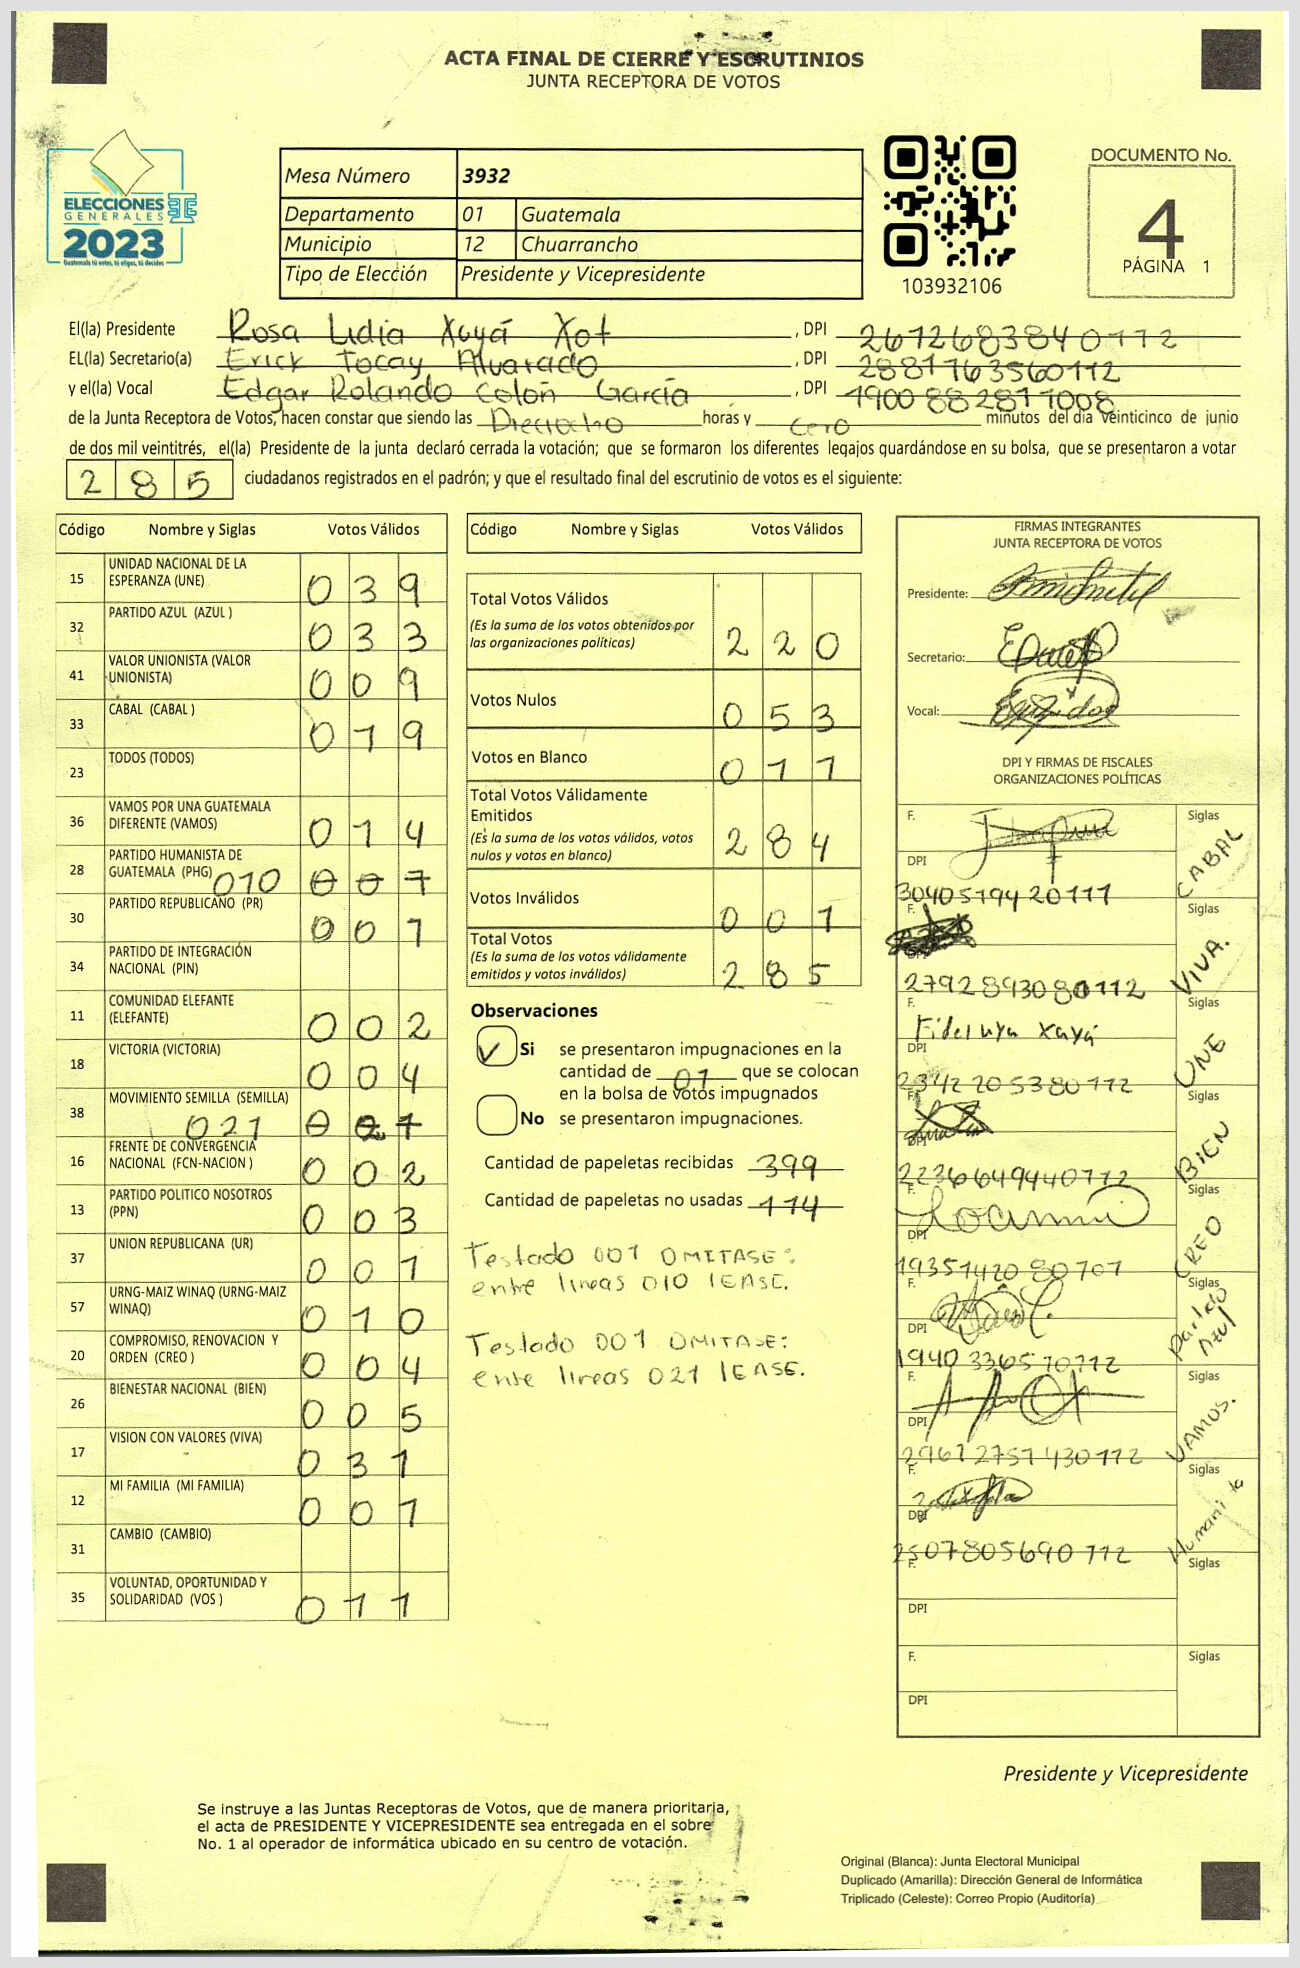 ACTA FINAL DE CIERRE Y ESCRUTINIOS
JUNTA RECEPTORA DE VOTOS
ELECCIONES
GENERALES
2023
Guatemala tú votas, tú eliges, tú decides
Mesa Número 3932
Departamento 01 Guatemala
Municipio 12 Chuarrancho
Tipo de Elección Presidente y Vicepresidente
103932106
DOCUMENTO No.
4
PÁGINA 1
El(la) Presidente Rosa Lidia Xuyá Xot , DPI 2672683840112
EL(la) Secretario(a) Erick Tocay Alvarado , DPI 2881763560112
y el(la) Vocal Edgar Rolando Colón García , DPI 1900882811008
de la Junta Receptora de Votos, hacen constar que siendo las Dieciocho horas y cero minutos del día veinticinco de junio
de dos mil veintitrés, el(la) Presidente de la junta declaró cerrada la votación; que se formaron los diferentes legajos guardándose en su bolsa, que se presentaron a votar
285 ciudadanos registrados en el padrón; y que el resultado final del escrutinio de votos es el siguiente:
Código Nombre y Siglas Votos Válidos
15 UNIDAD NACIONAL DE LA ESPERANZA (UNE) 039
32 PARTIDO AZUL (AZUL ) 033
41 VALOR UNIONISTA (VALOR UNIONISTA) 009
33 CABAL (CABAL ) 019
23 TODOS (TODOS)
36 VAMOS POR UNA GUATEMALA DIFERENTE (VAMOS) 014
28 PARTIDO HUMANISTA DE GUATEMALA (PHG) 010 001
30 PARTIDO REPUBLICANO (PR) 001
34 PARTIDO DE INTEGRACIÓN NACIONAL (PIN)
11 COMUNIDAD ELEFANTE (ELEFANTE) 002
18 VICTORIA (VICTORIA) 004
38 MOVIMIENTO SEMILLA (SEMILLA) 021
16 FRENTE DE CONVERGENCIA NACIONAL (FCN-NACION ) 002
13 PARTIDO POLITICO NOSOTROS (PPN) 003
37 UNION REPUBLICANA (UR) 001
57 URNG-MAIZ WINAQ (URNG-MAIZ WINAQ) 010
20 COMPROMISO, RENOVACION Y ORDEN (CREO ) 004
26 BIENESTAR NACIONAL (BIEN) 005
17 VISION CON VALORES (VIVA) 031
12 MI FAMILIA (MI FAMILIA) 001
31 CAMBIO (CAMBIO)
35 VOLUNTAD, OPORTUNIDAD Y SOLIDARIDAD (VOS ) 011
Código Nombre y Siglas Votos Válidos
Total Votos Válidos 220
(Es la suma de los votos obtenidos por
las organizaciones políticas)
Votos Nulos 053
Votos en Blanco 011
Total Votos Válidamente
Emitidos 284
(Es la suma de los votos válidos, votos
nulos y votos en blanco)
Votos Inválidos 001
Total Votos 285
(Es la suma de los votos válidamente
emitidos y votos inválidos)
Observaciones
Si se presentaron impugnaciones en la
cantidad de 01 que se colocan
en la bolsa de votos impugnados
No se presentaron impugnaciones.
Cantidad de papeletas recibidas 399
Cantidad de papeletas no usadas 114
Testado 001 OMITASE:
entre lineas 010 lEASE.
Testado 001 OMITASE:
entre lineas 021 lEASE.
FIRMAS INTEGRANTES
JUNTA RECEPTORA DE VOTOS
Presidente:
Secretario:
Vocal:
DPI Y FIRMAS DE FISCALES
ORGANIZACIONES POLÍTICAS
F. Siglas
DPI 3040519420111 CABAL
F. Siglas
DPI 2792893080112 VIVA.
F. Siglas
DPI 2342205380112 UNE
F. Siglas
DPI 2236649440112 BIEN
F. Siglas
DPI 1935142080101 CREO
F. Siglas
DPI 1940336570112 Partido Azul
F. Siglas
DPI 29612751430112 VAMOS.
F. Siglas
DPI 2507805690112 Humanista
F. Siglas
DPI
F. Siglas
DPI
Presidente y Vicepresidente
Se instruye a las Juntas Receptoras de Votos, que de manera prioritaria,
el acta de PRESIDENTE Y VICEPRESIDENTE sea entregada en el sobre
No. 1 al operador de informática ubicado en su centro de votación.
Original (Blanca): Junta Electoral Municipal
Duplicado (Amarilla): Dirección General de Informática
Triplicado (Celeste): Correo Propio (Auditoría)